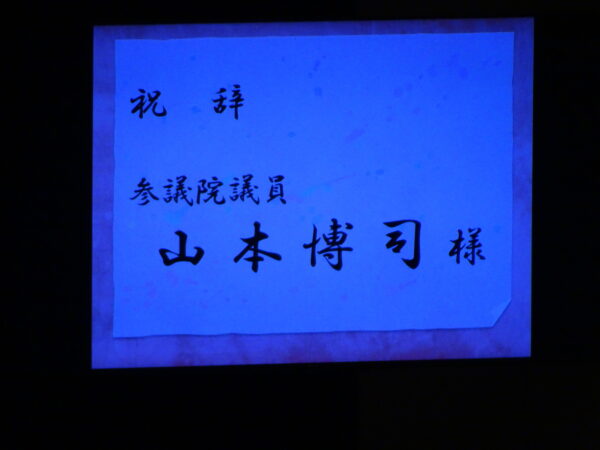 祝　辞
参議院議員
山本博司様